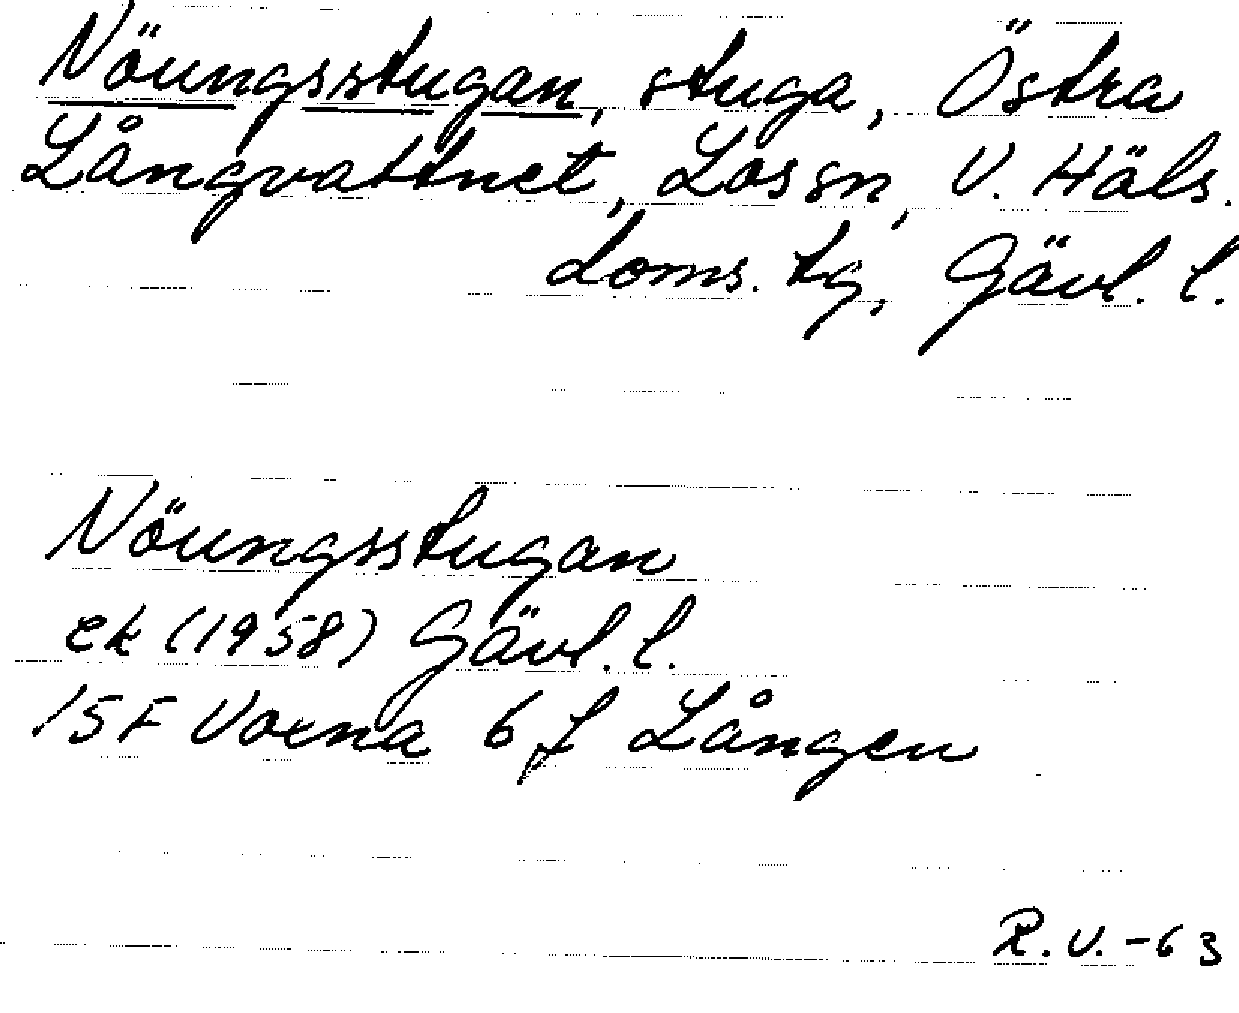 Nöungsstugan, stuga, Östra
Långvattnet, Los sn, V. Häls.
doms. tg, Gävl. l.
Nöungsstugan
ek (1958) Gävl. l.
15F Voxna 6 f Lången
R.V. -63